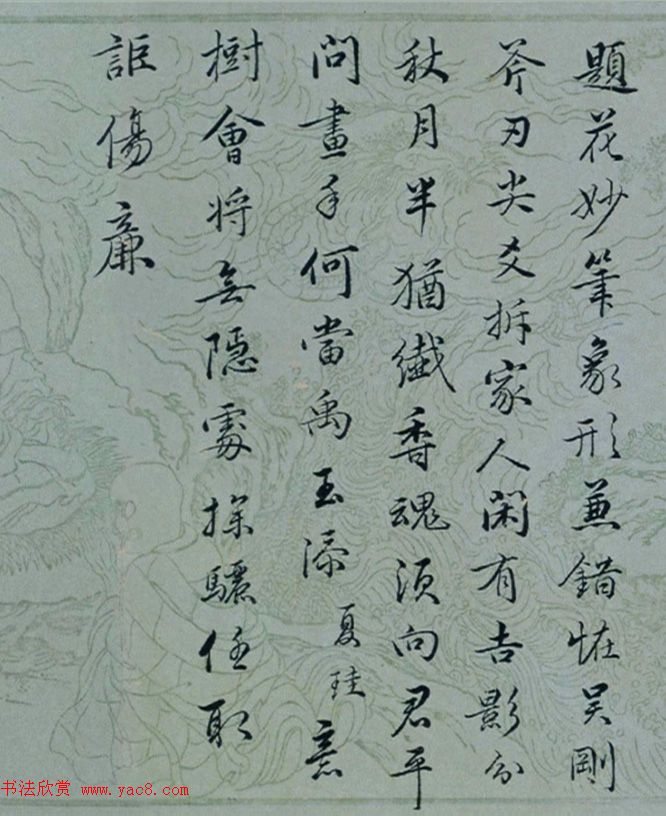 題花妙筆象形兼錯恠吳剛
斧刃尖爻拆家人閑有吉影分
秋月半猶纖香魂須向君平
問畫手何當禹玉添夏珪意
樹會将無隱處探驪任取
詎傷廉
书法欣赏 www.yac8.com